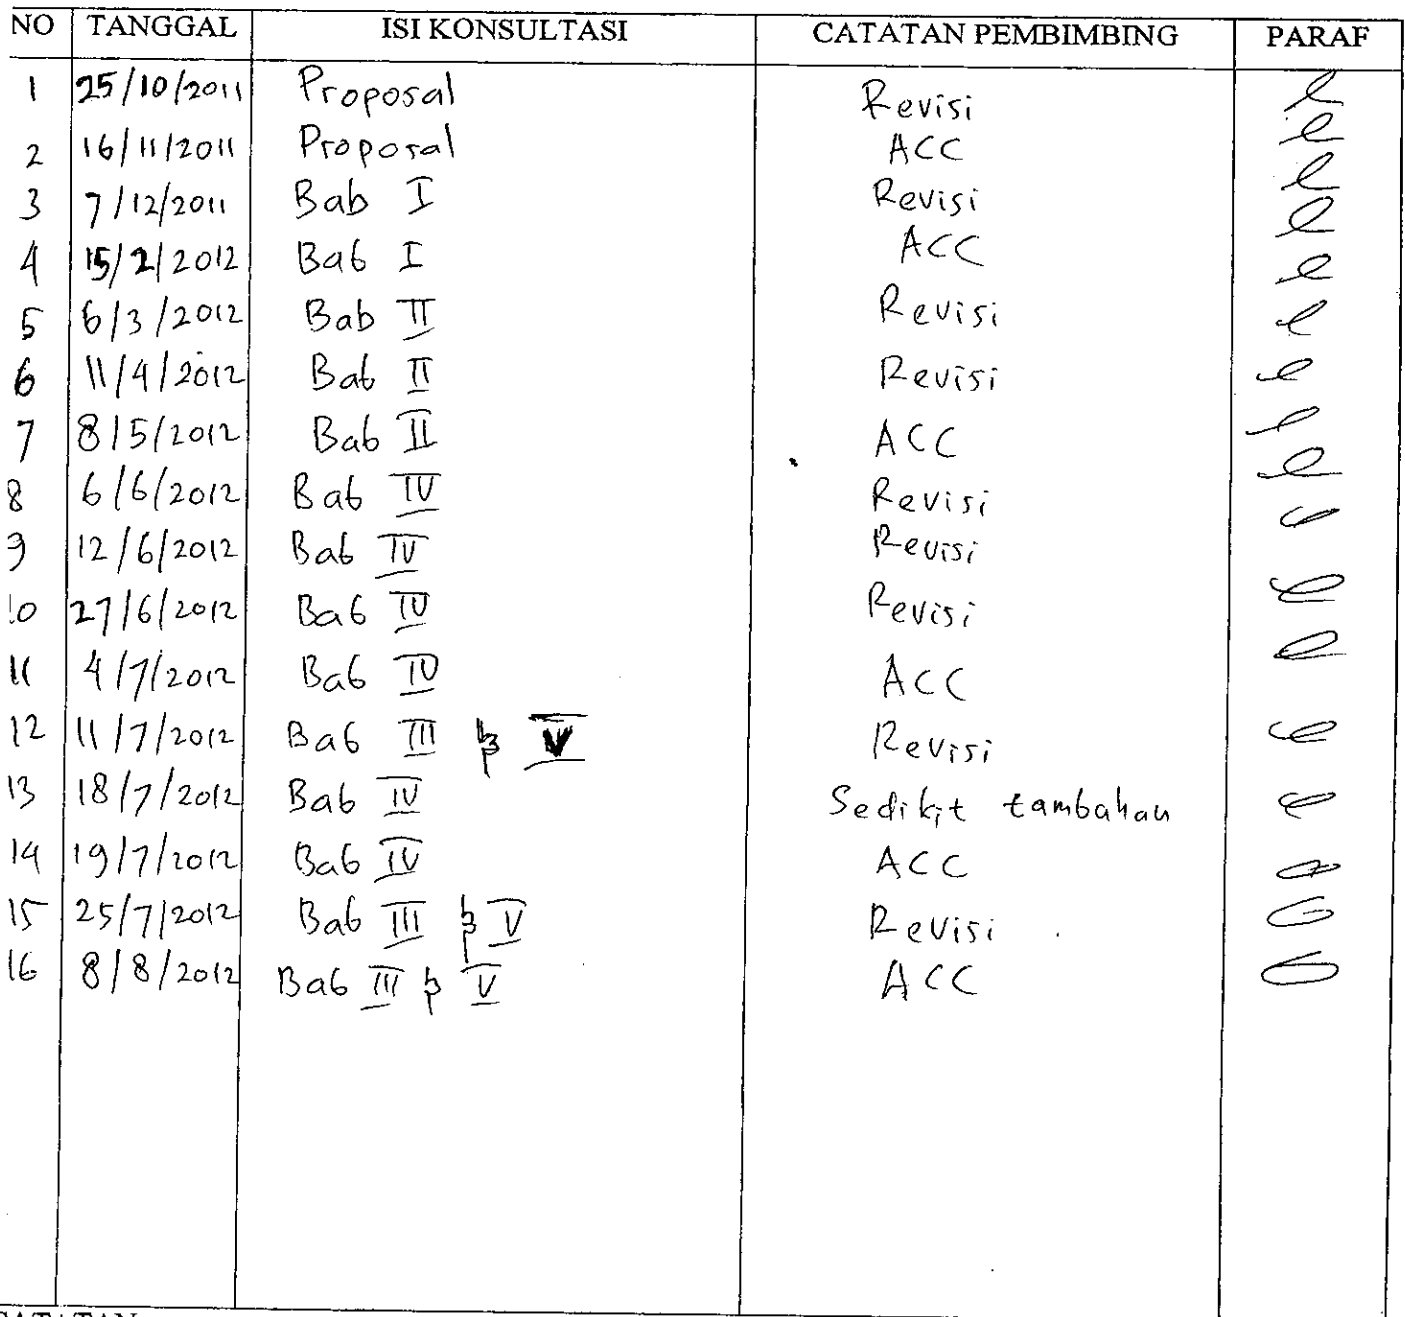 NO TANGGAL ISI KONSULTASI CATATAN PEMBIMBING PARAF
1 25/10/2011 Proposal Revisi
2 16/11/2011 Proposal ACC
3 7/12/2011 Bab I Revisi
4 15/2/2012 Bab I ACC
5 6/3/2012 Bab II Revisi
6 11/4/2012 Bab II Revisi
7 8/5/2012 Bab II ACC
8 6/6/2012 Bab IV Revisi
9 12/6/2012 Bab IV Revisi
10 27/6/2012 Bab IV Revisi
11 4/7/2012 Bab IV ACC
12 11/7/2012 Bab III & V Revisi
13 18/7/2012 Bab IV Sedikit tambahan
14 19/7/2012 Bab IV ACC
15 25/7/2012 Bab III & V Revisi
16 8/8/2012 Bab III & V ACC
CATATAN